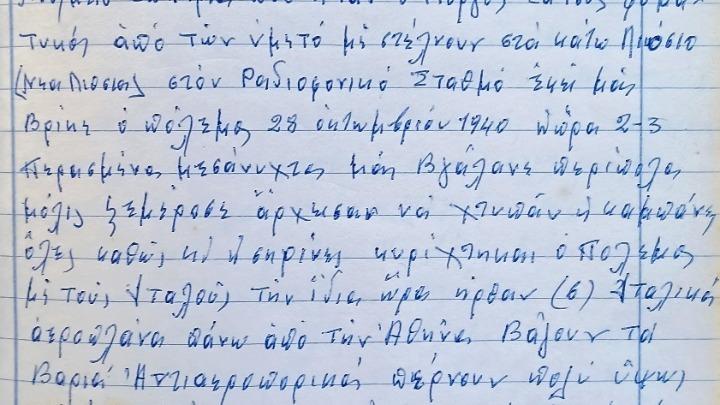 τικός ἀπό τῶν ὑμετό μὲ στέλνουν στά κάτω Λιόσια
(Νέα Λιόσια) στόν Ραδιοφονικό Σταθμό ἐκεί μάς
Βρίκε ὁ πόλεμος 28 ὀκτωμβρίου 1940 ἡ ὥρα 2-3
περασμένα μεσάνυχτα μάς Βγάλανε περίπολα
μόλις ξεμέροσε ἄρχισαν νά χτυπάν ἡ καμπάνες
ὅλες καθώς κι ἡ σηρίνες κυρίχτηκαι ὁ Πόλεμος
μὲ τούς Ἰταλούς τὴν ἴδια ὥρα ἠρθαν (6) Ἰταλικά
ἀεροπλάνα πάνω ἀπό τὴν Ἀθήνα Βάζουν τά
Βαριά Ἀντιαεροπορικά πέρνουν πολί ὕψως